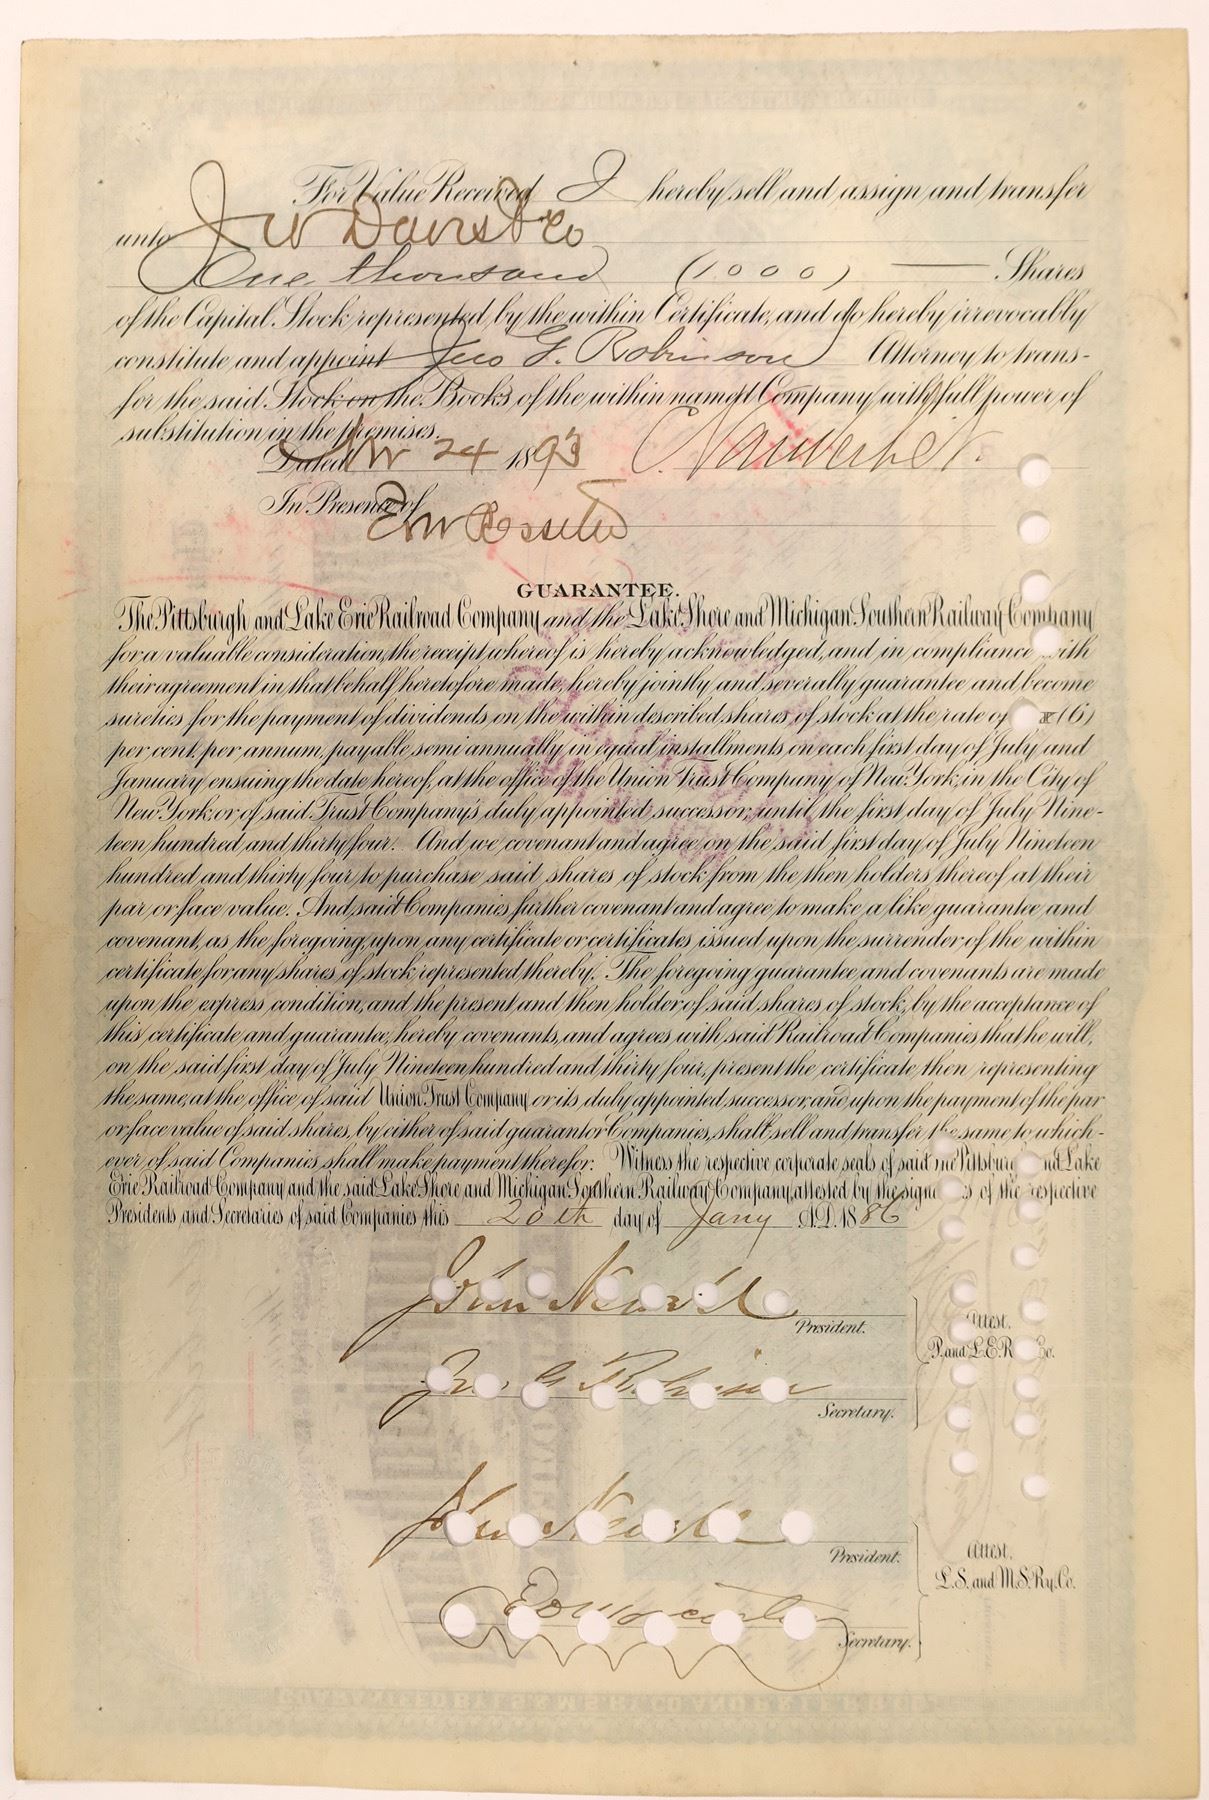 For Value Received I hereby sell and assign and transfer
unto J W Davis & Co
One thousand (1000) Shares
of the Capital Stock represented by the within Certificate, and do hereby irrevocably
constitute and appoint Jno G. Robinson Attorney to trans-
fer the said Stock on the Books of the within named Company with full power of
substitution in the premises.
Dated 24 1893 C.
In Presence of
E W
GUARANTEE.
The Pittsburgh and Lake Erie Railroad Company and the Lake Shore and Michigan Southern Railway Company
for a valuable consideration, the receipt whereof is hereby acknowledged, and in compliance with
their agreement in that behalf heretofore made, hereby jointly and severally guarantee and become
sureties for the payment of dividends on the within described shares of stock at the rate of (6)
per cent. per annum, payable semi annually, in equal installments on each first day of July and
January ensuing the date hereof, at the office of the Union Trust Company of New York, in the City of
New York, or of said Trust Company's duly appointed successor, until the first day of July Nine-
teen hundred and thirty four. And we covenant and agree, on the said first day of July Nineteen
hundred and thirty four, to purchase said shares of stock from the then holders thereof at their
par or face value. And said Companies further covenant and agree to make a like guarantee and
covenant, as the foregoing, upon any certificate or certificates issued upon the surrender of the within
certificate for any shares of stock represented thereby. The foregoing guarantee and covenants are made
upon the express condition, and the present and then holder of said shares of stock, by the acceptance of
this certificate and guarantee, hereby covenants, and agrees with said Railroad Companies that he will,
on the said first day of July Nineteen hundred and thirty four, present the certificate then representing
the same, at the office of said Union Trust Company or its duly appointed successor, and upon the payment of the par
or face value of said shares, by either of said guarantor Companies, shall sell and transfer the same to which-
ever of said Companies shall make payment therefor. Witness the respective corporate seals of said The Pittsburgh and Lake
Erie Railroad Company and the said Lake Shore and Michigan Southern Railway Company, attested by the signatures of the respective
Presidents and Secretaries of said Companies this 20th day of Jany A.D. 1886
John Newell
President.
Attest.
P. and L.E.R. Co.
Jno G Robinson
Secretary.
John Newell
President.
Attest.
L.S. and M.S. Ry. Co.
E D Worcester
Secretary.